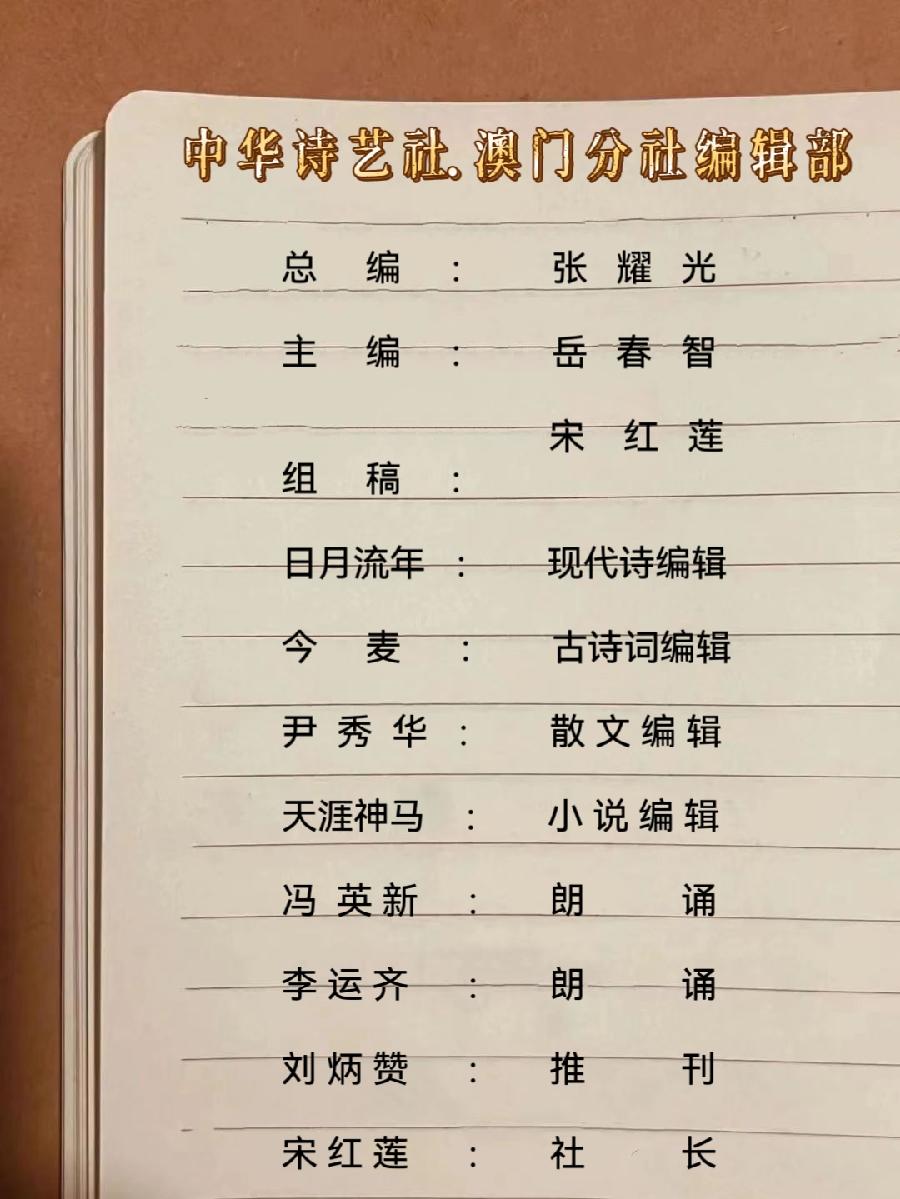 中华诗艺社.澳门分社编辑部
总编：张耀光
主编：岳春智
宋红莲
组稿：
日月流年：现代诗编辑
今麦：古诗词编辑
尹秀华：散文编辑
天涯神马：小说编辑
冯英新：朗诵
李运齐：朗诵
刘炳赞：推刊
宋红莲：社长